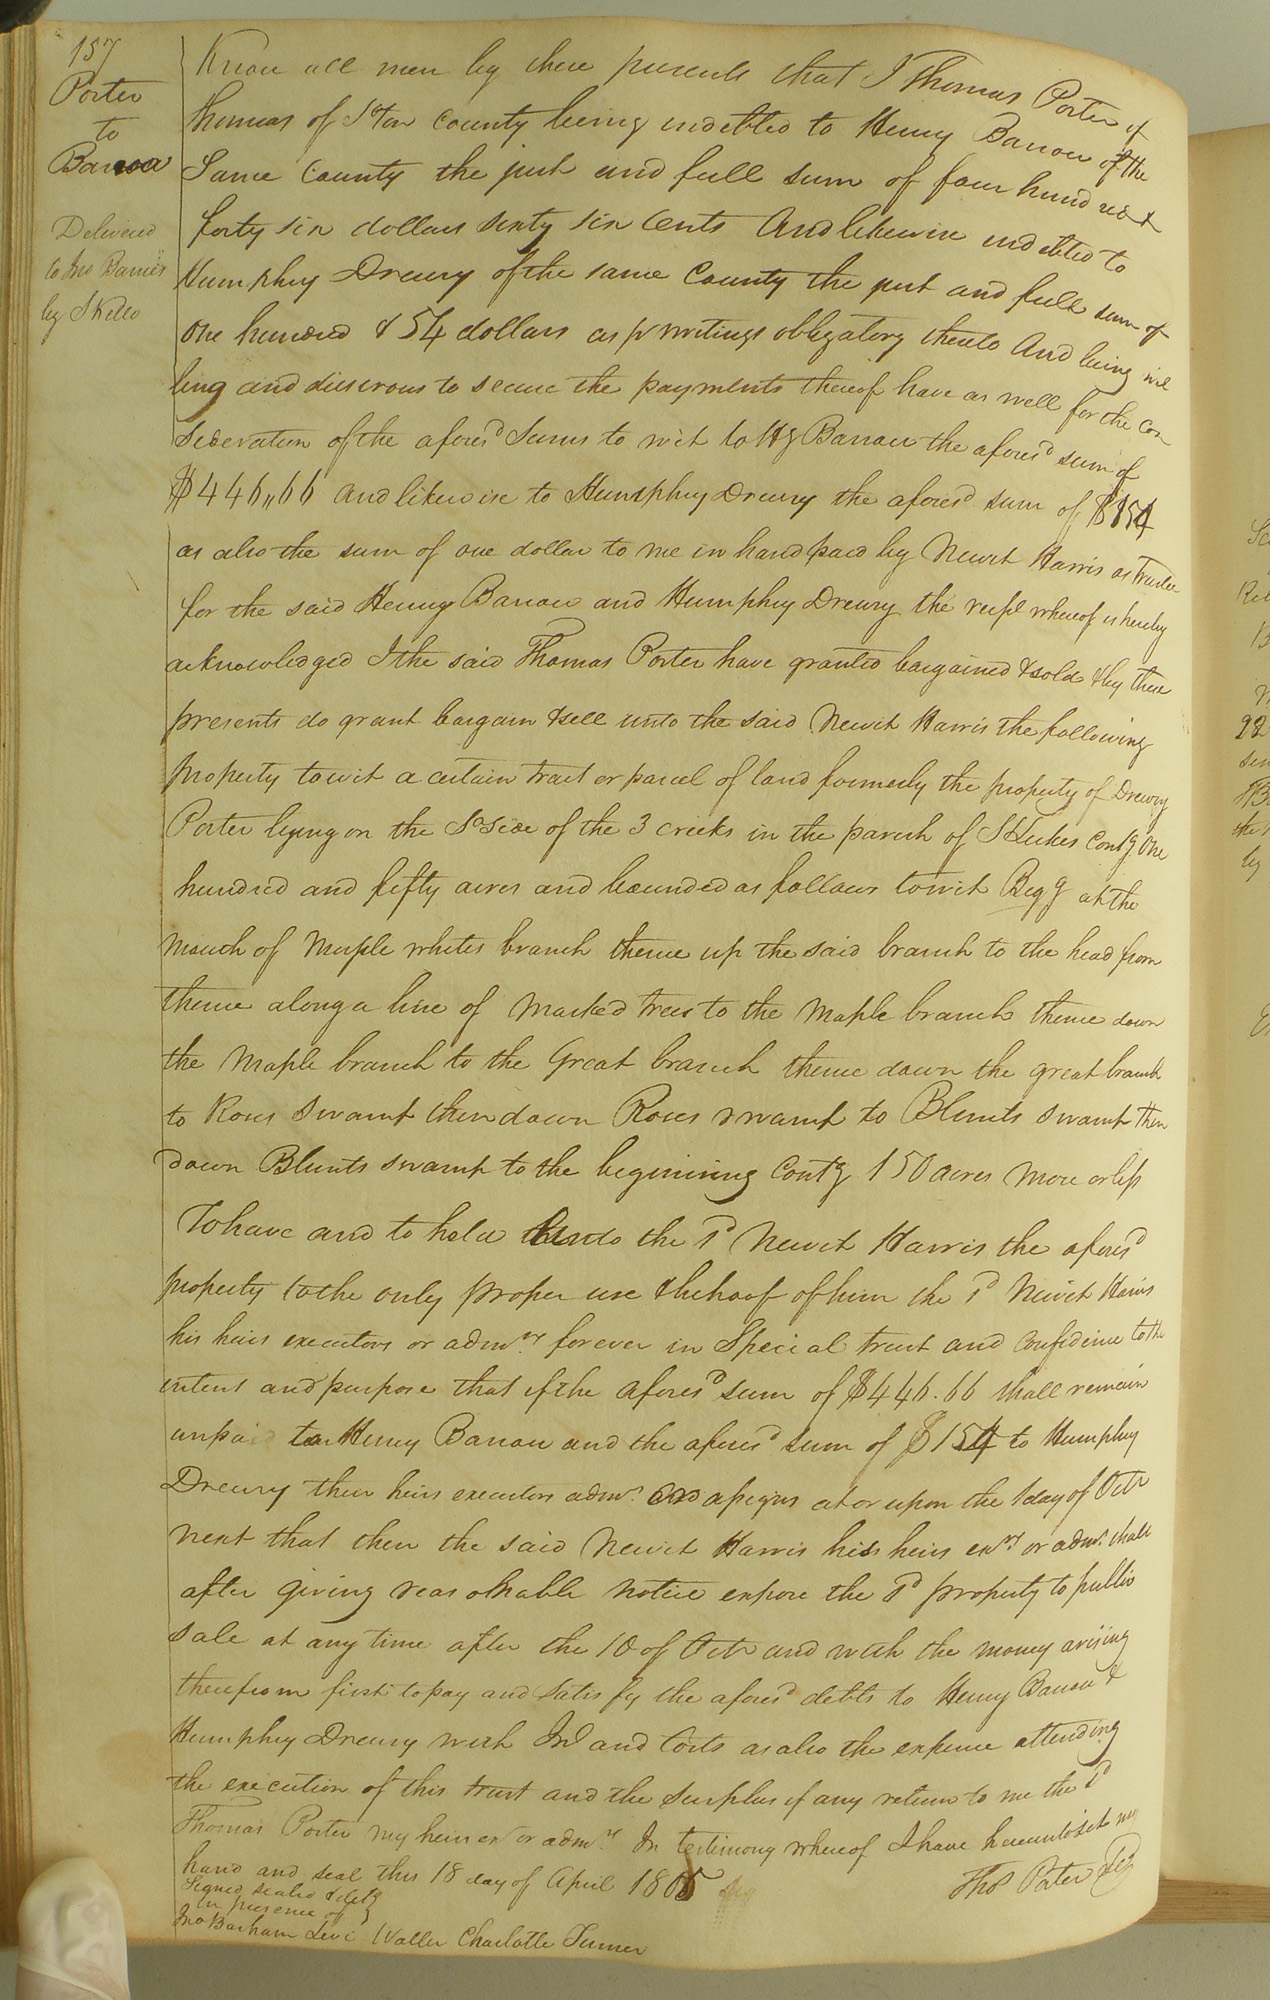 157
Porter
to
Barrow
Delivered
to Jno Barnes
by S Kello
Know all men by these presents that I Thomas Porter of
Thomas of S°ton County being indebted to Henry Barrow of the
Same County the just and full sum of four hundred &
forty six dollars sixty six Cents And likewise indebted to
Humphry Drewry of the same County the just and full sum of
One hundred & 54 dollars as pr writings obligatory thereto And being wil
ling and diserous to secure the payments thereof have as well for the Con
sideration of the afores'd Sums to wit to Hy Barrow the afores'd sum of
$446,,66 and likewise to Humphry Drewry the afores'd sum of $154
as also the sum of one dollar to me in hand paid by Newit Harris as Trustee
for the said Henry Barrow and Humphry Drewry the recpt whereof is hereby
acknowledged I the said Thomas Porter have granted bargained & sold & by these
presents do grant bargain & sell unto the said Newit Harris the following
property to wit a certain tract or parcel of land formerly the property of Drewry
Porter lying on the S° side of the 3 creeks in the parish of S Lukes contg One
hundred and fifty acres and bounded as follows to wit Begg at the
Mouth of Maple whites branch thence up the said branch to the head from
thence along a line of Marked trees to the Maple branch thence down
the Maple branch to the Great branch thence down the great branch
to Roses swamp then down Roses swamp to Blunts swamp then
down Blunts swamp to the begining Contg 150 acres More or less
To have and to hold unto the s'd Newit Harris the afores'd
property to the only proper use & behoof of him the s'd Newit Harris
his heirs executors or admrs forever in Special trust and confidence to the
intent and purpose that if the afores'd sum of $446.66 shall remain
unpaid to Henry Barrow and the afores'd sum of $154 to Humphry
Drewry their heirs executors admrs and assigns at or upon the 1 day of Octr
next that then the said Newit Harris his heirs exrs or admrs shall
after giving reasonable notice expose the s'd property to public
sale at any time after the 10 of Octr and with the money arising
therefrom first to pay and satisfy the afores'd debts to Henry Barrow &
Humphry Drewry with Int and Costs as also the expence attending
the execution of this trust and the surplus if any return to me the s'd
Thomas Porter my heirs exr or admrs In testimony whereof I have hereunto set my
hand and seal this 18 day of April 1805
Thos Porter
Signed sealed & delt'd
in presence of
Jno Barham Levi Waller Charlotte Turner